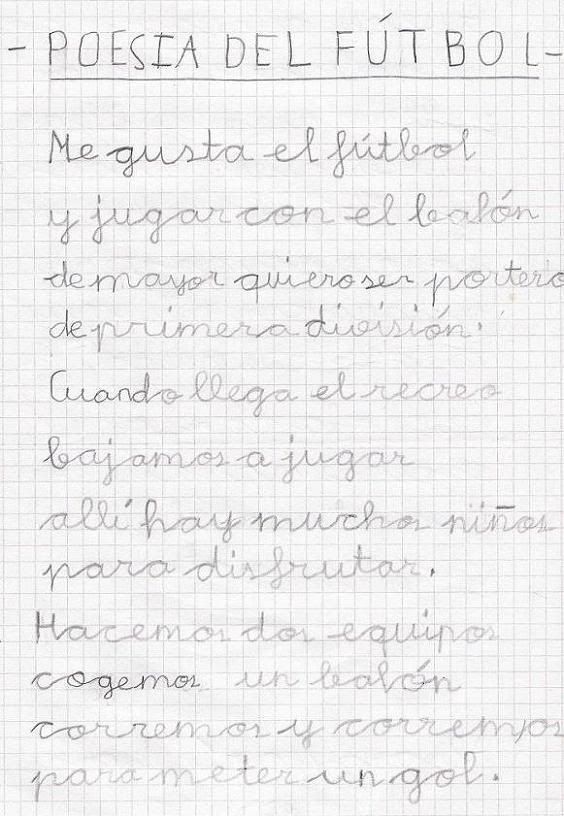 - POESIA DEL FÚTBOL -
Me gusta el fútbol
y jugar con el balón
de mayor quiero ser portero
de primera división.
Cuando llega el recreo
bajamos a jugar
allí hay muchos niños
para disfrutar.
Hacemos dos equipos
cogemos un balón
corremos y corremos
para meter un gol.